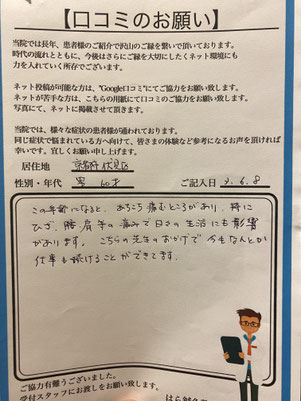 【口コミのお願い】
当院では長年、患者様のご紹介で沢山のご縁を繋いで頂いております。
時代の流れとともに、今後はさらにご縁を大切にしたくネット環境にも
力を入れていく所存でございます。
ネット投稿が可能な方は、"Google口コミ"にてご協力をお願い致します。
ネットが苦手な方は、こちらの用紙にて口コミのご協力をお願い致します。
写真にて、ネットに掲載させて頂きます。
当院では、様々な症状の患者様が通われております。
同じ症状で悩まれている方へ向けて、皆さまの体験など参考になるお声を頂ければ
幸いです。宜しくお願い申し上げます。
居住地 京都府伏見区
性別・年代 男 60才 ご記入日 3.6.8
この年齢になると、あちこち痛むところがあり、特に
ひざ、腰、肩、手の痛みで日々の生活にも影響
があります。こちらの先生のおかげで今もなんとか
仕事も続けることができてます。
ご協力有難うございました。
受付スタッフにお渡しをお願い致します。